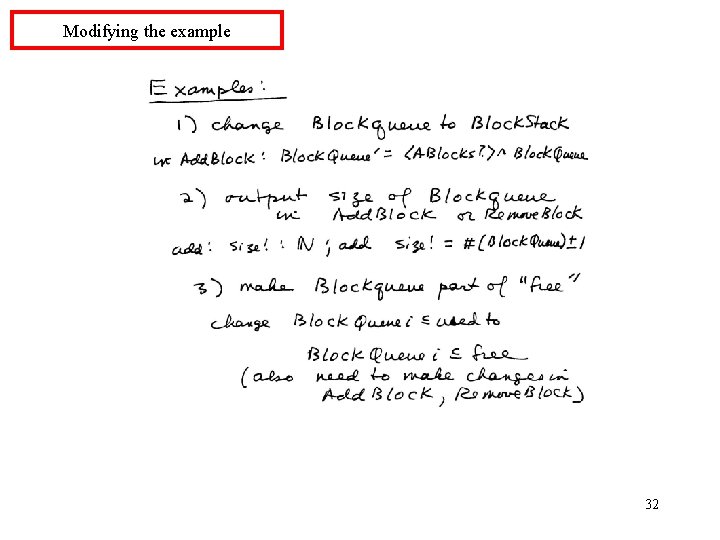 Modifying the example
Examples:
1) change Blockqueue to BlockStack
in AddBlock: BlockQueue' = <ABlocks?> ^ BlockQueue
2) output size of Blockqueue
in AddBlock or RemoveBlock
add: size! : N ; add size! = #(BlockQueue) ± 1
3) make Blockqueue part of "free"
change BlockQueue i ⊆ used to
BlockQueue i ⊆ free
(also need to make changes in
AddBlock, RemoveBlock)
32